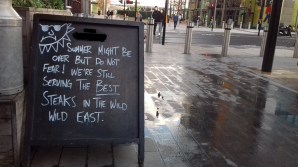 SUMMER MIGHT BE
OVER BUT DO NOT
FEAR! WE'RE STILL
SERVING THE BEST
STEAKS IN THE WILD
WILD EAST.